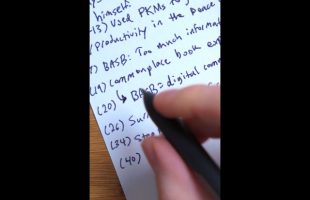 himself.
-13) Used PKMs to
Productivity in the
7) BASB: Too much informat
(19) commonplace book exp
(20) ↳ BASB = digital comm
(26) Sur
(34) St
(40)